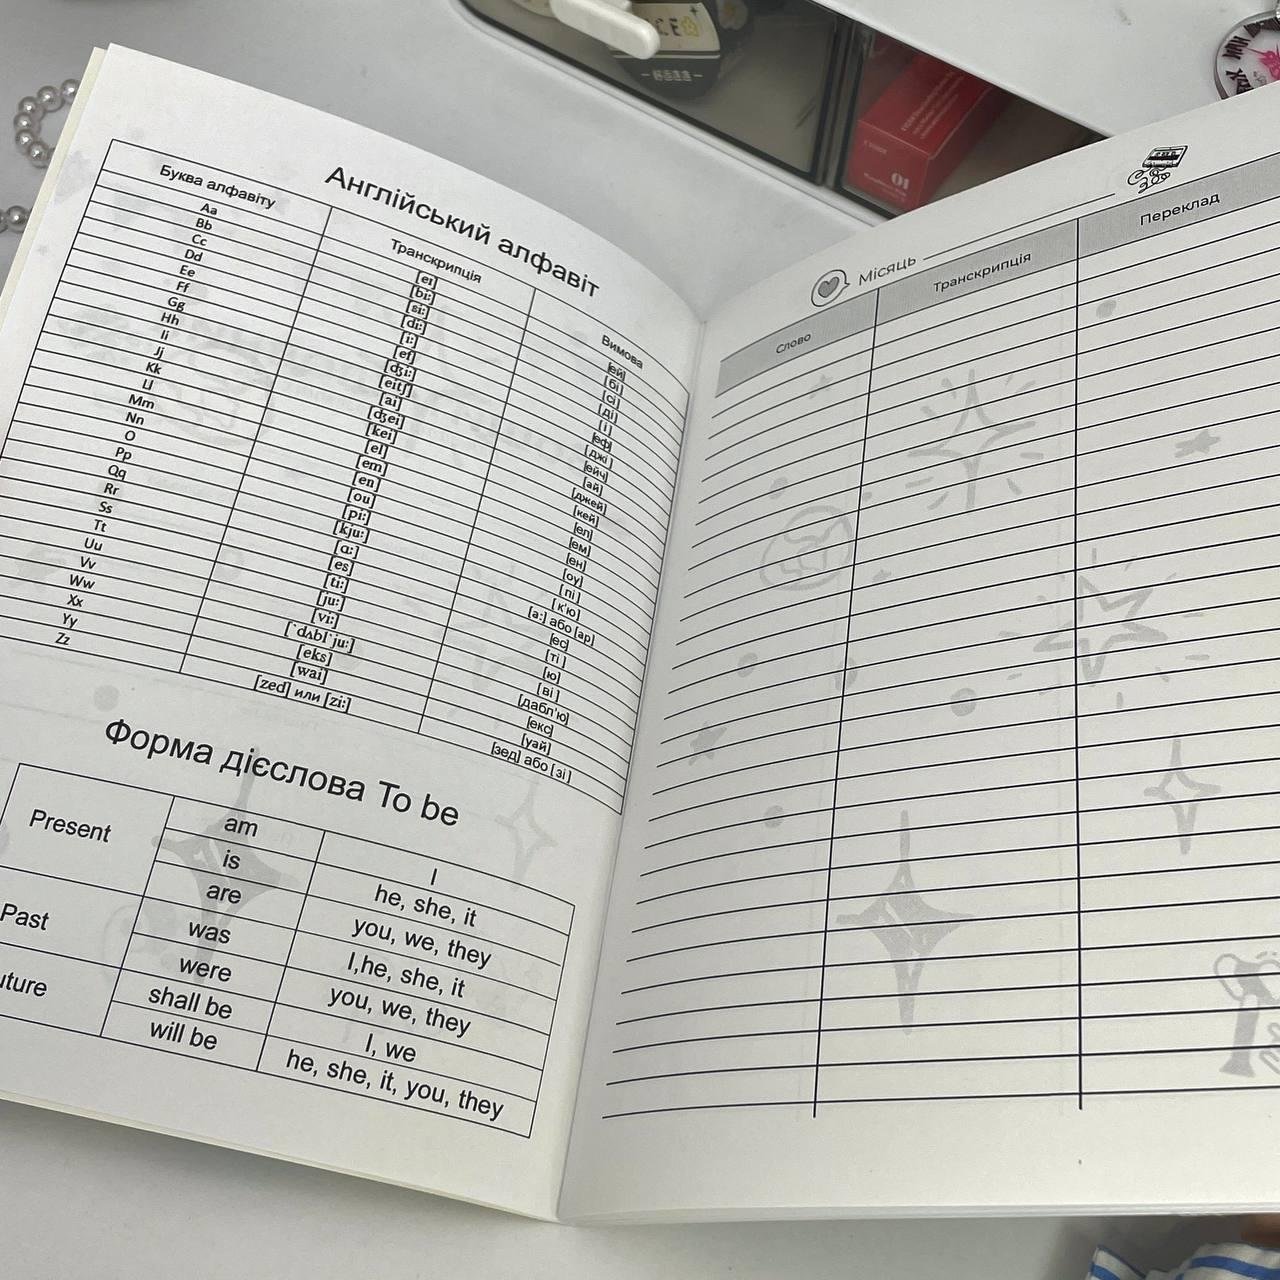 Англійський алфавіт
Буква алфавіту Транскрипція Вимова
Aa [eɪ] [ей]
Bb [bi:] [бі]
Cc [si:] [сі]
Dd [di:] [ді]
Ee [i:] [і]
Ff [ef] [еф]
Gg [dʒi:] [джі]
Hh [eitʃ] [ейч]
Ii [ai] [ай]
Jj [dʒei] [джей]
Kk [kei] [кей]
Ll [el] [ел]
Mm [em] [ем]
Nn [en] [ен]
O [ou] [оу]
Pp [pi:] [пі]
Qq [kju:] [к'ю]
Rr [ɑ:] [а:] або [ар]
Ss [es] [ес]
Tt [ti:] [ті]
Uu [ju:] [ю]
Vv [vi:] [ві]
Ww [`dʌbl`ju:] [дабл'ю]
Xx [eks] [екс]
Yy [wai] [уай]
Zz [zed] или [zi:] [зед] або [зі]
Форма дієслова To be
Present am I
is he, she, it
are you, we, they
Past was I,he, she, it
were you, we, they
uture shall be I, we
will be he, she, it, you, they
Місяць
Слово Транскрипція Переклад
01